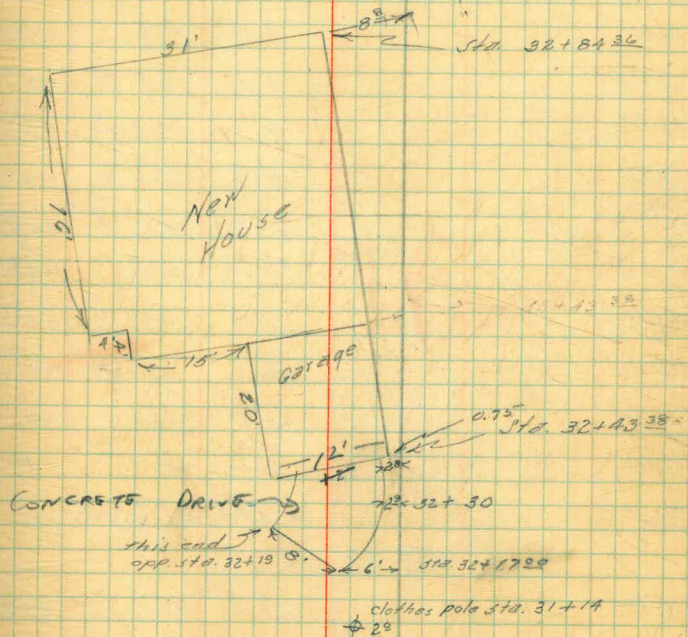 31'
8 8
Sta. 32+84 36
16'
New
House
+43 38
4' 4'
15'
Garage
20'
0.75
Sta. 32+43 38
12'
2
2 8
CONCRETE DRIVE
32+30
this end
opp. sta. 32+19
8'
6'
Sta. 32+17 20
clothes pole sta. 31+14
2 0